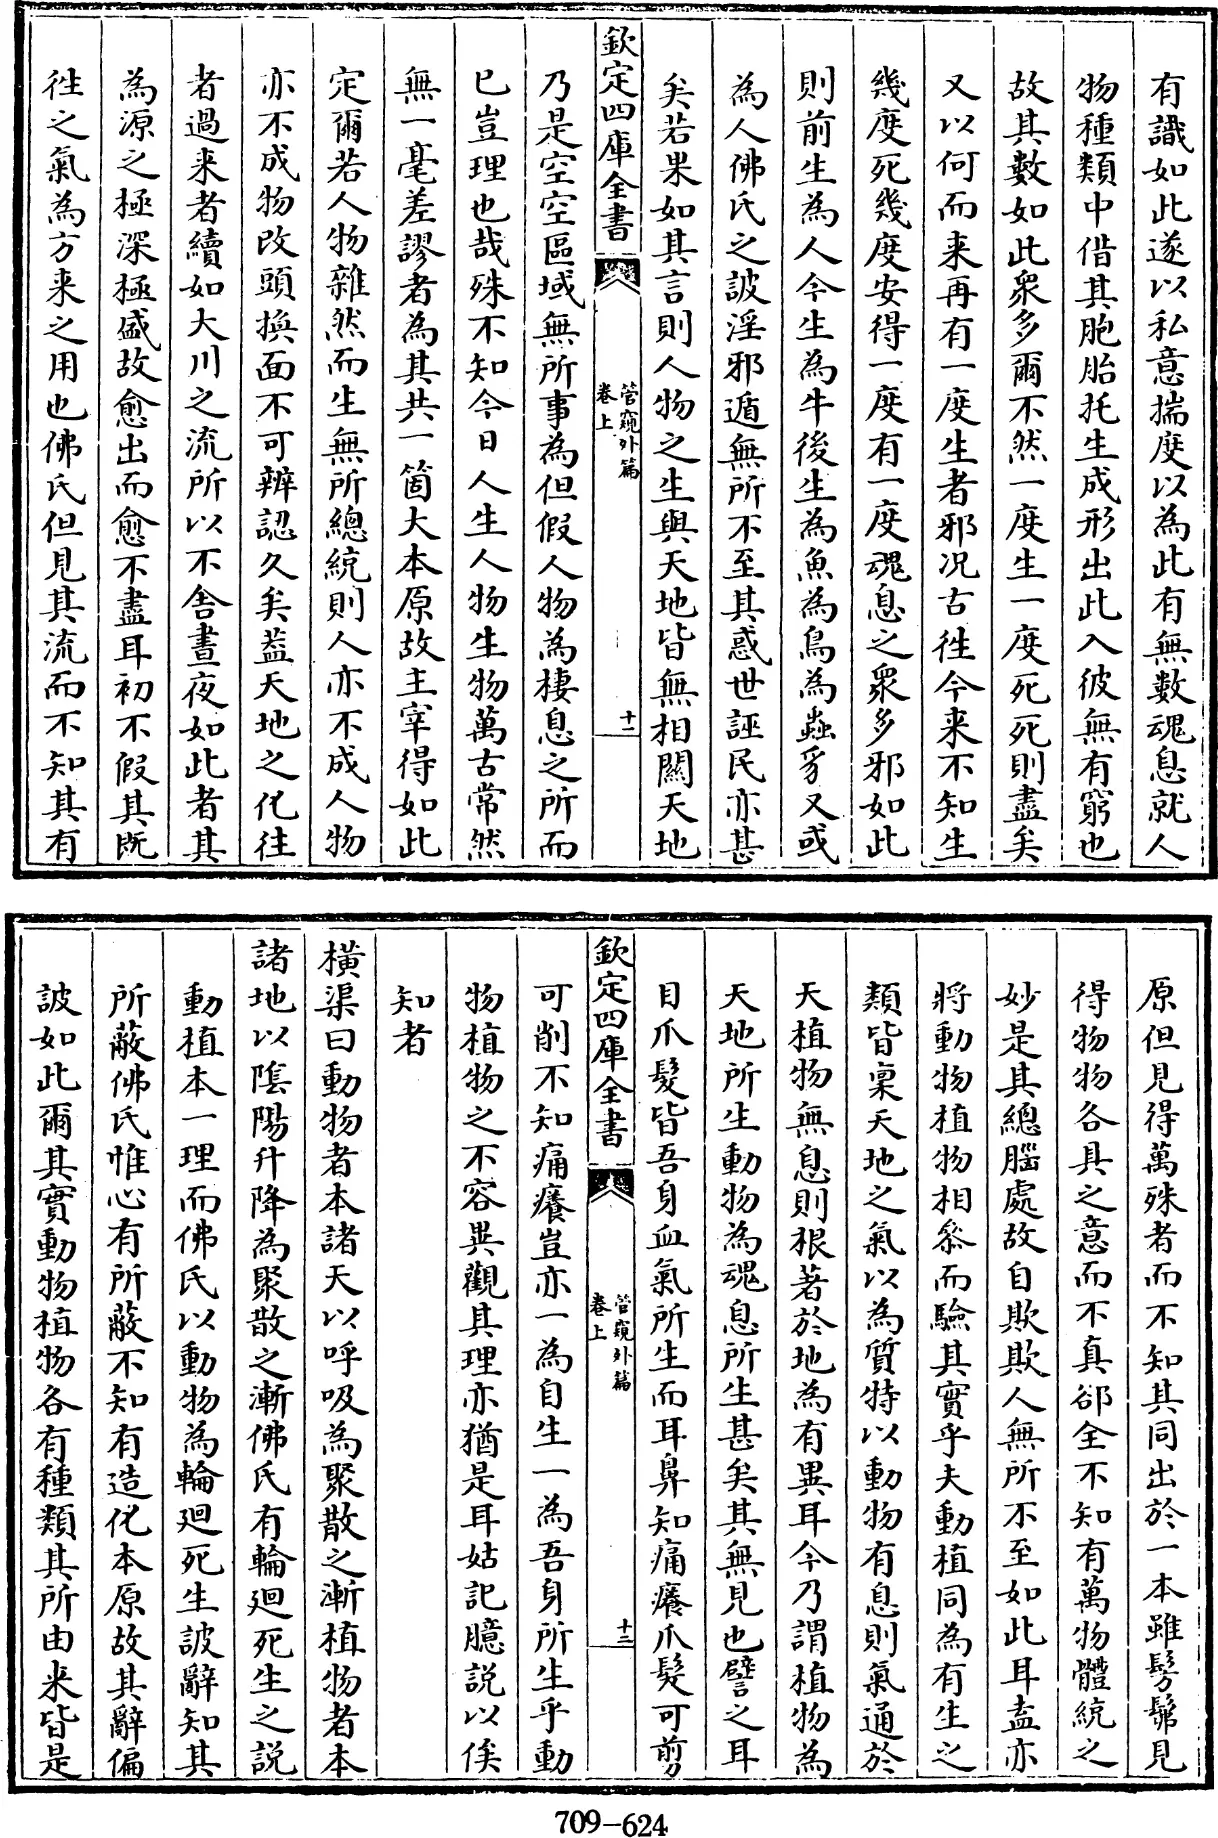 有識如此遂以私意揣度以為此有無數魂息就人
物種類中借其胞胎托生成形出此入彼無有窮也
故其數如此衆多爾不然一度生一度死死則盡矣
又以何而来再有一度生者邪况古徃今来不知生
幾度死幾度安得一度有一度魂息之衆多邪如此
則前生為人今生為牛後生為魚為鳥為蟲豸又或
為人佛氏之詖淫邪遁無所不至其惑世誣民亦甚
矣若果如其言則人物之生與天地皆無相關天地
欽定四庫全書
管窺外篇
卷上
十一
乃是空空區域無所事為但假人物為棲息之所而
已豈理也哉殊不知今日人生人物生物萬古常然
無一毫差謬者為其共一箇大本原故主宰得如此
定爾若人物雜然而生無所總統則人亦不成人物
亦不成物改頭換面不可辨認久矣葢天地之化往
者過来者續如大川之流所以不舍晝夜如此者其
為源之極深極盛故愈出而愈不盡耳初不假其既
徃之氣為方来之用也佛氏但見其流而不知其有
原但見得萬殊者而不知其同出於一本雖髣髴見
得物物各具之意而不真郤全不知有萬物體統之
妙是其總腦處故自欺欺人無所不至如此耳盍亦
將動物植物相叅而驗其實乎夫動植同為有生之
類皆稟天地之氣以為質特以動物有息則氣通於
天植物無息則根著於地為有異耳今乃謂植物為
天地所生動物為魂息所生甚矣其無見也譬之耳
目爪髮皆吾身血氣所生而耳鼻知痛癢爪髮可剪
欽定四庫全書
管窺外篇
卷上
十二
可削不知痛癢豈亦一為自生一為吾身所生乎動
物植物之不容異觀其理亦猶是耳姑記臆説以俟
知者
橫渠曰動物者本諸天以呼吸為聚散之漸植物者本
諸地以陰陽升降為聚散之漸佛氏有輪廻死生之説
動植本一理而佛氏以動物為輪廻死生詖辭知其
所蔽佛氏惟心有所蔽不知有造化本原故其辭偏
詖如此爾其實動物植物各有種類其所由来皆是
709-624